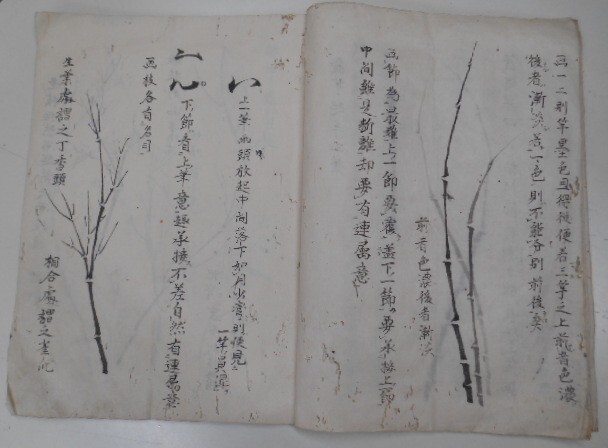 画一二到竿墨色且得從便若三竿之上前者色濃
後者漸淡若一色則不能分別前後矣
前者色濃後者漸淡
画節為最難上一節要覆蓋下一節要承接上節
中间雖是断離却要有連属意
上一筆兩頭放起中间落下如月少弯則便見
一竿圓混
下節看上筆意趣承接不差自然有連属意
画枝各有名目
生葉處謂之丁香頭
相合處謂之雀爪